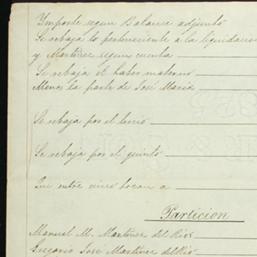 Ymporte segun Balance adjunto
Se rebaja lo perteneciente a la liquidacion
y Martinez segun cuenta
Se rebaja el haber materno
Menos la parte de José Maria
Se rebaja por el tercio
Se rebaja por el quinto
Que entre cinco tocan a
Particion
Manuel M. Martinez del Rio
Gregorio José Martinez del Rio